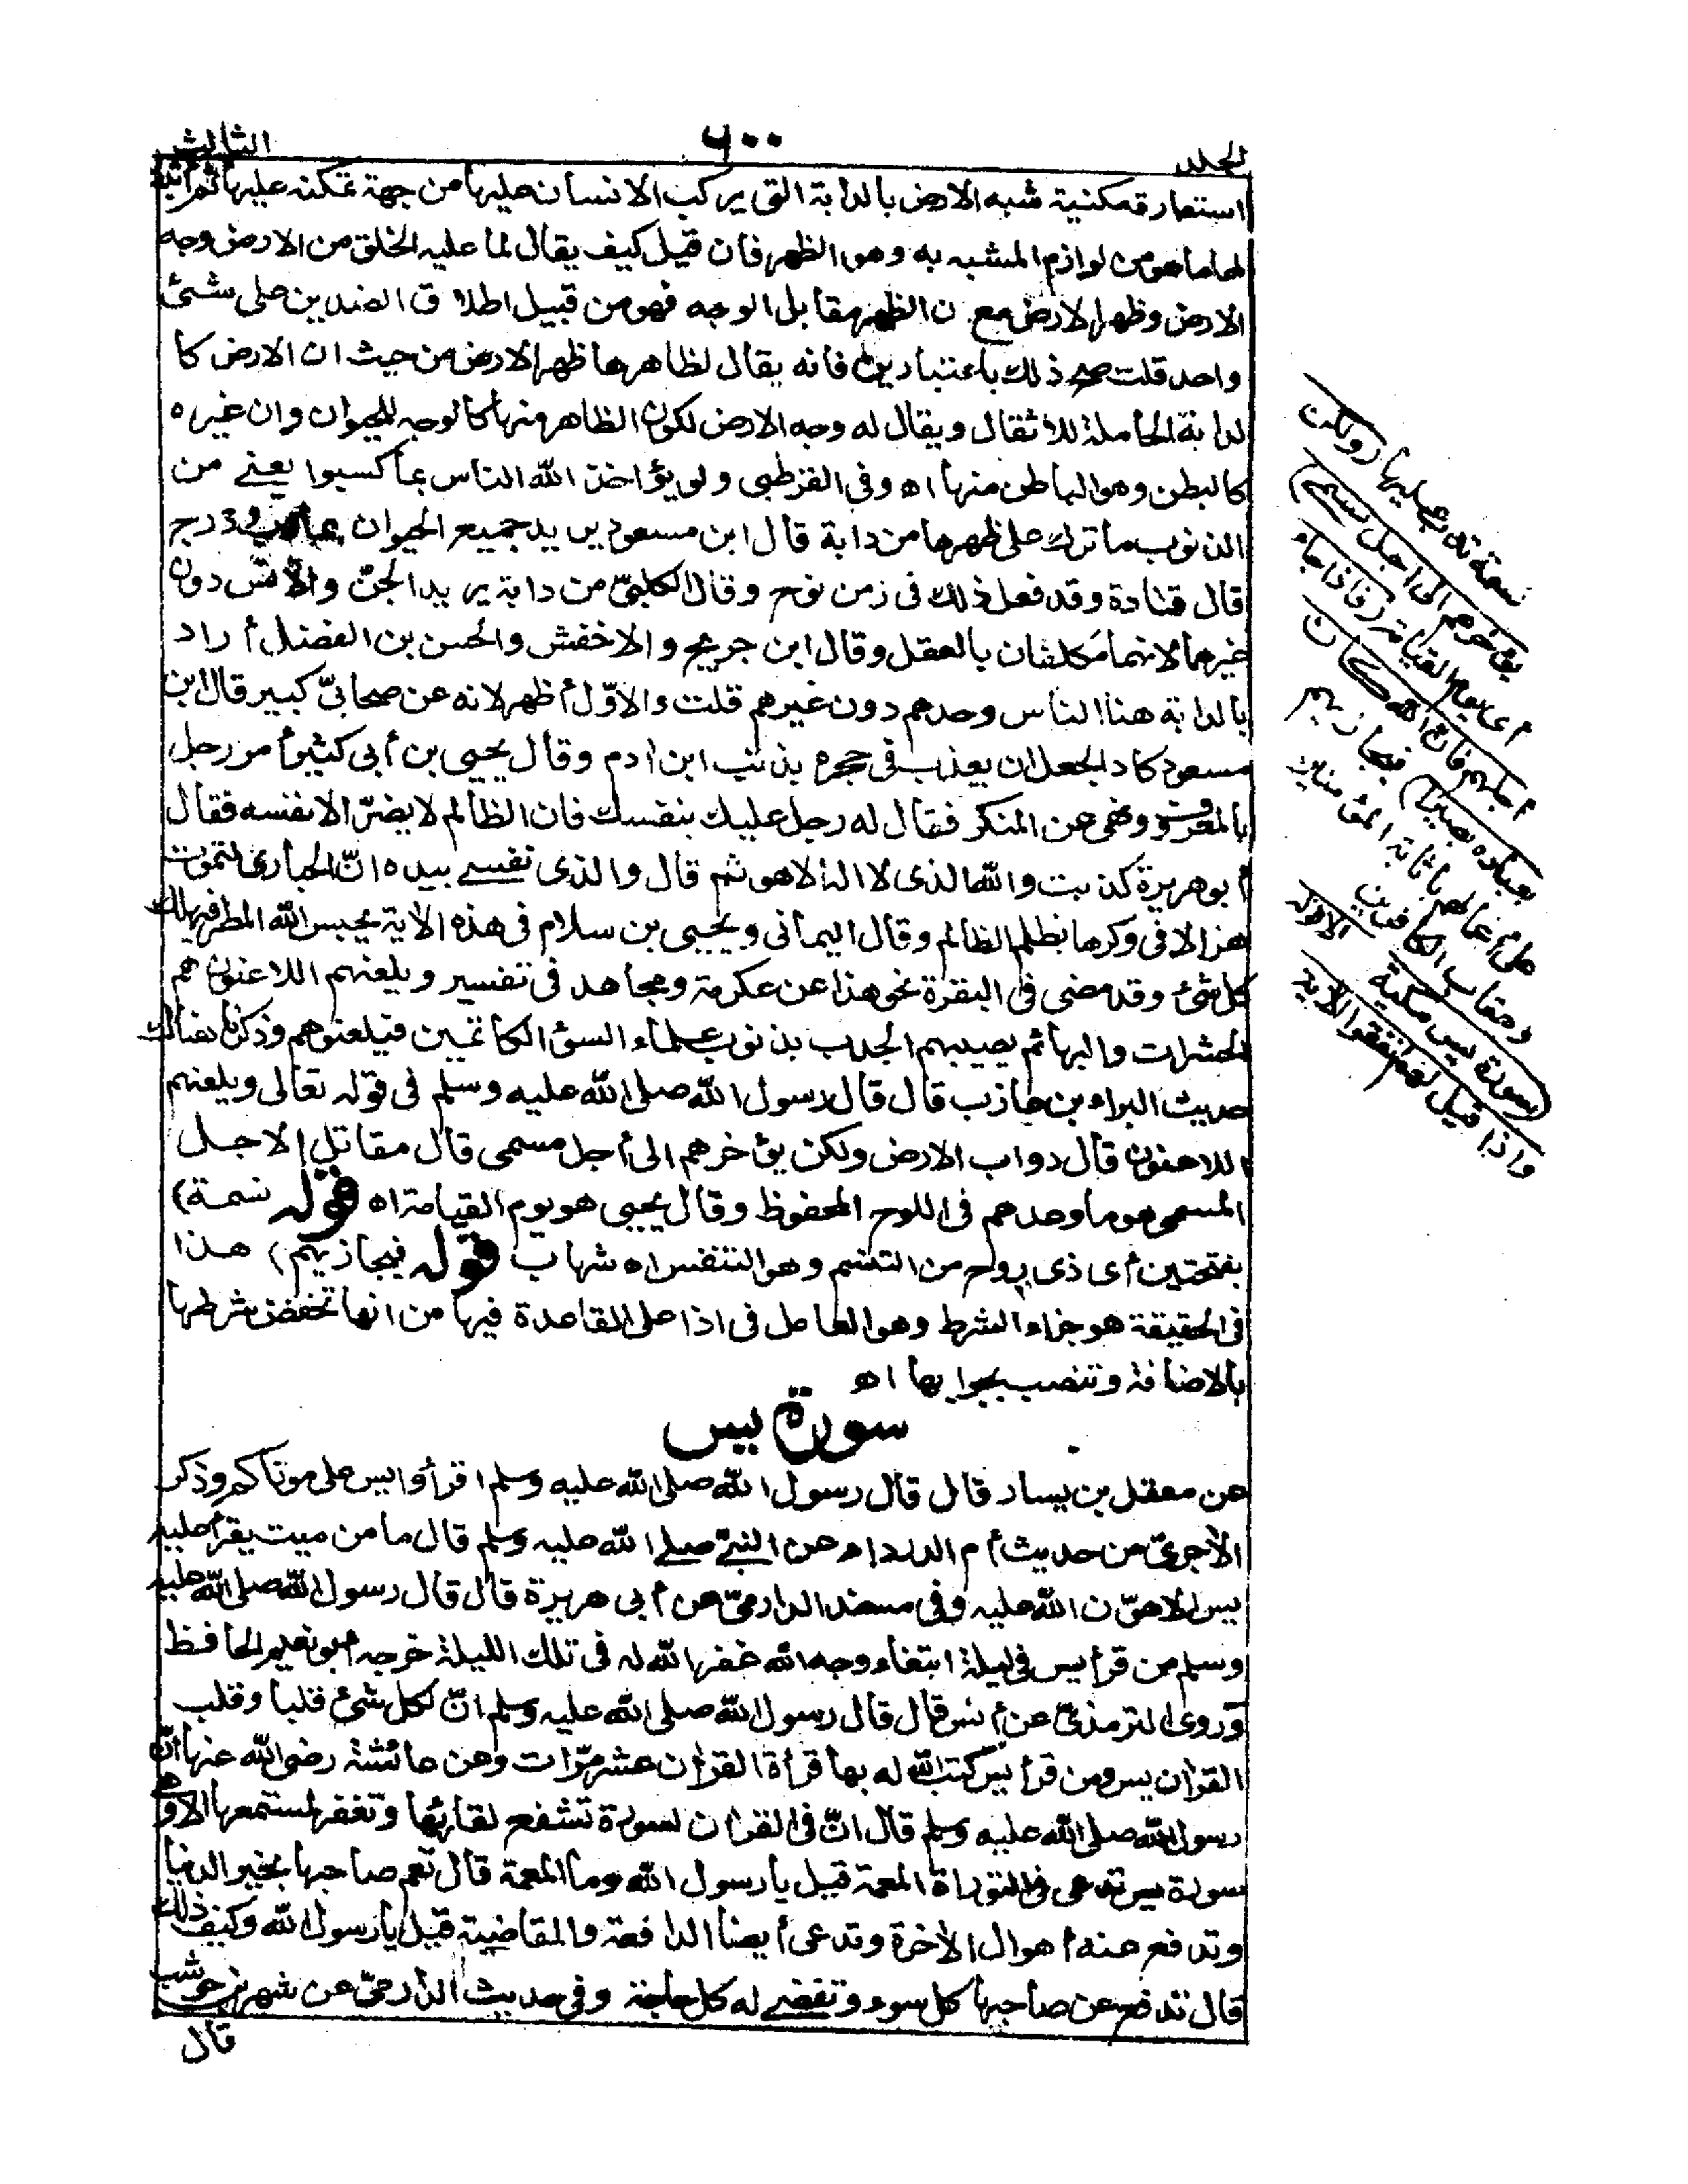 الجلد
٦٠٠
الثالث
استعارة مكنية شبه الارض بالدابة التى يركب الانسان عليها من جهة تمكنه عليها ثم أثبت
لها ما هو من لوازم المشبه به وهو الظهر فان قيل كيف يقال لما عليه الخلق من الارض وجه
الارض وظهر الارض مع ن الظهر مقابل الوجه فهو من قبيل اطلاق الضدين على شئ
واحد قلت صح ذلك باعتبارين فانه يقال لظاهرها ظهر الارض من حيث ان الارض كا
لدابة الحاملة للاثقال ويقال له وجه الارض لكون الظاهر منها كالوجه للحيوان وان غيره
كالبطن وهو الباطن منها اه وفى القرطبى ولو يؤاخذ الله الناس بما كسبوا يعنے من
الذنوب ما ترك على ظهرها من دابة قال ابن مسعود يريد جميع الحيوان مما دب ودرج
قال قتادة وقد فعل ذلك فى زمن نوح وقال الكلبىّ من دابة يريد الجنّ والانس دون
غيرهما لانهما مكلفان بالعقل وقال ابن جريج والاخفش والحسن بن الفضل أراد
بالدابة هنا الناس وحدهم دون غيرهم قلت والاوّل أظهر لانه عن صحابىّ كبير قال ابن
مسعود كاد الجعل ان يعذب فى حجره بذنب ابن ادم وقال يحيى بن أبى كثير أمر رجل
بالمعروف ونهى عن المنكر فقال له رجل عليك بنفسك فان الظالم لا يضرّ الا نفسه فقال
أبو هريرة كذبت والله الذى لا اله الا هو ثم قال والذى نفسے بيده انّ الحبارى لتموت
هزالا فى وكرها بظلم الظالم وقال اليمانى ويحيى بن سلام فى هذه الاية يحبس الله المطر فيهلك
كل شئ وقد مضى فى البقرة نحو هذا عن عكرمة ومجاهد فى تفسير ويلعنهم اللاعنون هم
الحشرات والبهائم يصيبهم الجدب بذنوب علماء السوٓء الكاتمين فيلعنوهم وذكرنا هناك
حديث البراء بن عازب قال قال رسول الله صلى الله عليه وسلم فى قوله تعالى ويلعنهم
اللاعنون قال دواب الارض ولكن يؤخرهم الى أجل مسمى قال مقاتل الاجل
المسمى هو ما وعدهم فى اللوح المحفوظ وقال يحيى هو يوم القيامة اه قوله نسمة)
بفتحتين أى ذى روح من التنسم وهو التنفس اه شهاب قوله فيجازيهم) هذا
فى الحقيقة هو جزاء الشرط وهو العامل فى اذا على القاعدة فيها من انها تخفض شرطها
بالاضافة وتنصب بجوابها اه
سورة يس
عن معقل بن يسار قال قال رسول الله صلى الله عليه وسلم اقرأوا يس على موتاكم وذكر
الآجرىّ من حديث أم الدرداء عن النبىّ صلے الله عليه وسلم قال ما من ميت يقرأ عليه
يس الا هوّن الله عليه وفى مسند الدارمىّ عن أبى هريرة قال قال رسول الله صلى الله عليه
وسلم من قرأ يس فى ليلة ابتغاء وجه الله غفر الله له فى تلك الليلة خرجه أبو نعيم الحافظ
وروى الترمذىّ عن أنس قال قال رسول الله صلى الله عليه وسلم انّ لكل شئ قلبا وقلب
القرآن يس ومن قرأ يس كتب الله له بها قرأة القرآن عشر مرّات وعن عائشة رضى الله عنها أنّ
رسول الله صلى الله عليه وسلم قال انّ فى القرآن لسورة تشفع لقارئها وتغفر لمستمعها الا وهى
سورة يس تدعى فى التوراة المعمة قيل يا رسول الله وما المعمة قال تعم صاحبها بخير الدنيا
وتدفع عنه أهوال الآخرة وتدعى أيضا الدافعة والقاضية قيل يا رسول الله وكيف ذلك
قال تدفع عن صاحبها كل سوء وتقضے له كل حاجة وفى حديث الدارمىّ عن شهر بن حوشب
قال
نسمة تدب عليها (ولكن
يؤخرهم الى اجل مسمى)
أى يوم القيامة (فاذا جاء
أجلهم فان الله كان
بعباده بصيرا) فيجازيهم
على أعمالهم باثابة المؤمنين
وعقاب الكافرين
سورة يس مكية الا قوله
واذا قيل لهم انفقوا الاية